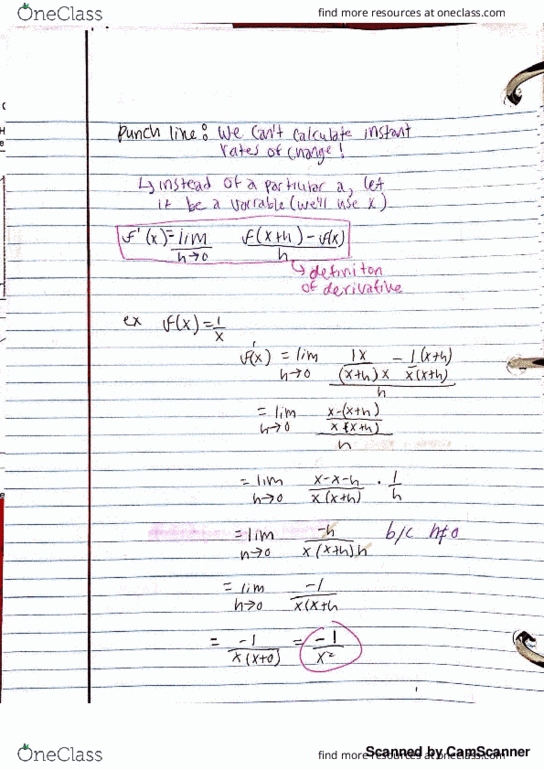 OneClass
find more resources at oneclass.com
Punch line: We can't calculate instant
rates of change!
↳ instead of a particular a, let
it be a variable (we'll use x)
f'(x) = lim h→0 f(x+h) - f(x) / h
↳ definiton
of derivative
ex f(x) = 1/x
f'(x) = lim h→0 (1x/(x+h)x - 1(x+h)/x(x+h)) / h
= lim h→0 (x-(x+h) / x(x+h)) / h
= lim h→0 x-x-h / x(x+h) · 1/h
= lim h→0 -h / x(x+h)h b/c h≠0
= lim h→0 -1 / x(x+h
= -1 / x(x+0) = -1 / x²
OneClass
find more resources at oneclass.com
Scanned by CamScanner